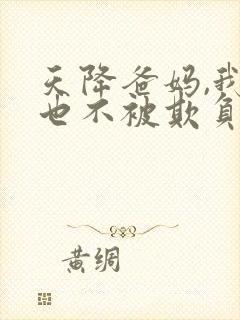 天降爸妈,我
也不被欺负
黄绸